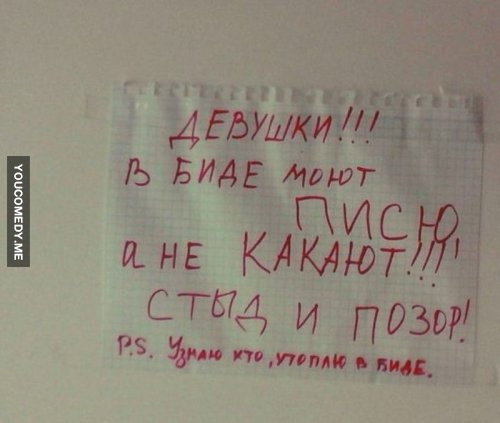 ДЕВУШКИ!!!
В БИДЕ МОЮТ
ПИСЮ
а НЕ КАКАЮТ!!!
СТЫД И ПОЗОР!
P.S. Узнаю кто, утоплю в биде.
YOUCOMEDY.ME